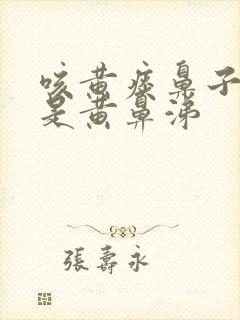 咳黄痰鼻子
是黄鼻涕
張壽永